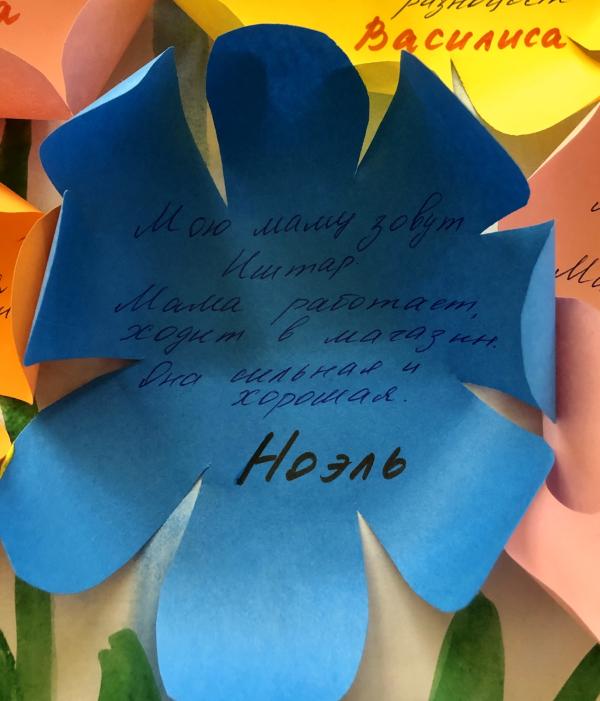 разноцвет
Василиса
Мою маму зовут
Иштар.
Мама работает,
ходит в магазин.
Она сильная и
хорошая.
Ноэль